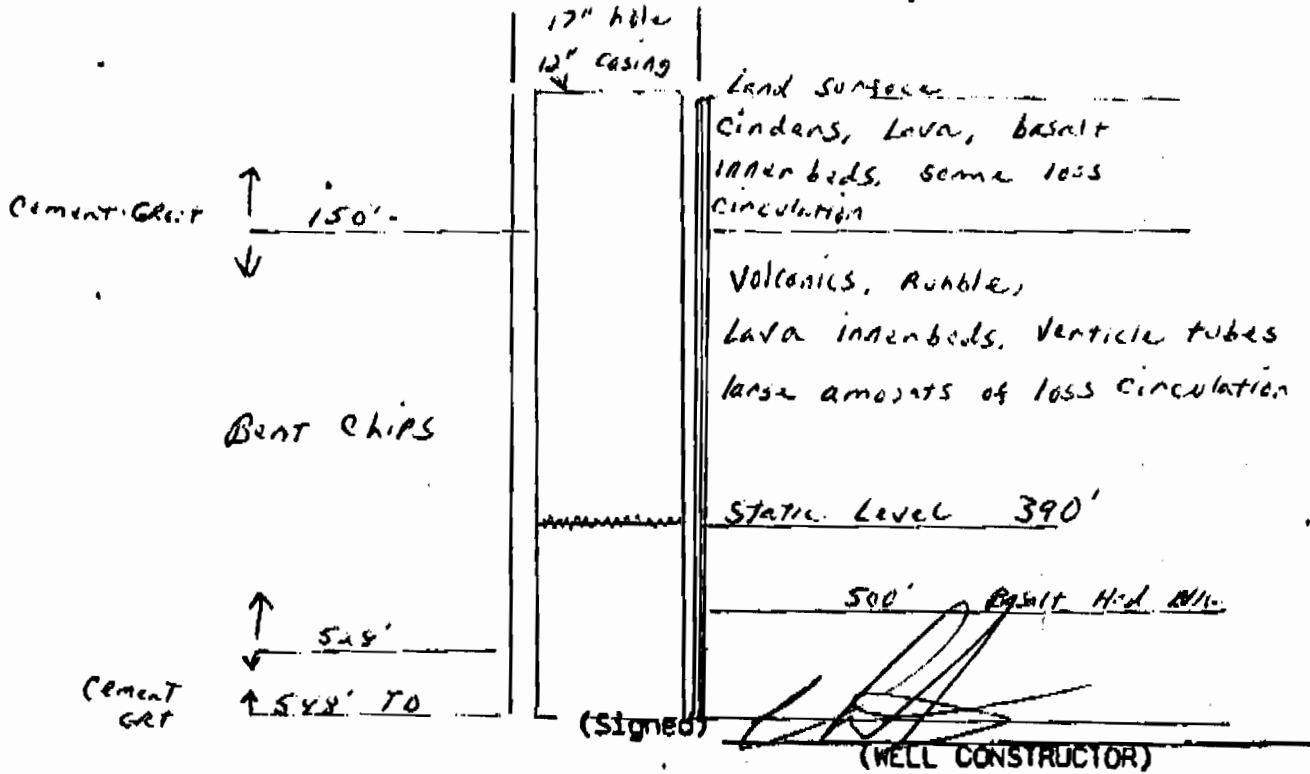 17" hole
12" casing
Land surface
Cinders, Lava, basalt
inner beds, some loss
circulation
Cement
150'
Volcanics, Rubble,
Lava innerbeds, Verticle tubes
large amounts of loss circulation
Bent Chips
Static Level 390'
500' Basalt
Cement
GRT
TD
(Signed)
(WELL CONSTRUCTOR)